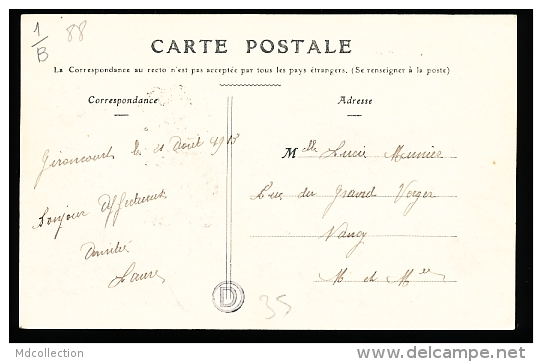 1
B
88
CARTE POSTALE
La Correspondance au recto n'est pas acceptée par tous les pays étrangers. (Se renseigner à la poste)
Correspondance
Adresse
Girancourt le Août 1913
Bonjour Affectueux
Laure
Melle Lucie Munier
Rue du Grand Verger
Nancy
M et Melle
D
35
Mdcollection
www.delcampe.net